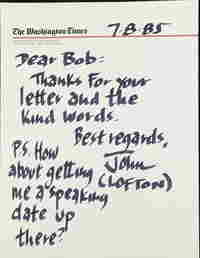 The Washington Times
7-8-85
Dear Bob:
Thanks for your
letter and the
kind words.
Best regards,
John
(LOFTON)
P.S. How
about getting
me a speaking
date up
there?